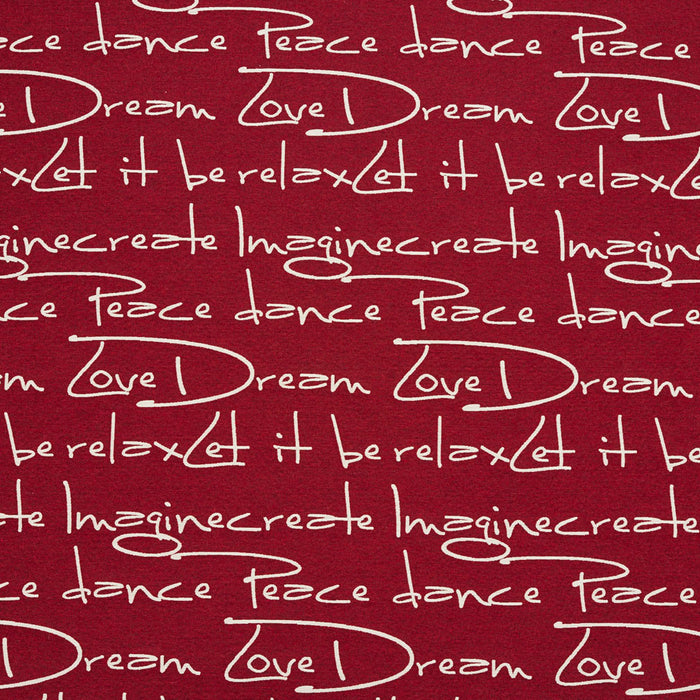 ce dance Peace dance Peace
e Dream Love Dream Love D
x Let it be relax Let it be relax Le
gine create Imagine create Imagine
ce Peace dance Peace dance
m Love Dream Love Dream
be relax Let it be relax Let it be
te Imagine create Imagine create
ce dance Peace dance Peace
Dream Love Dream Love D